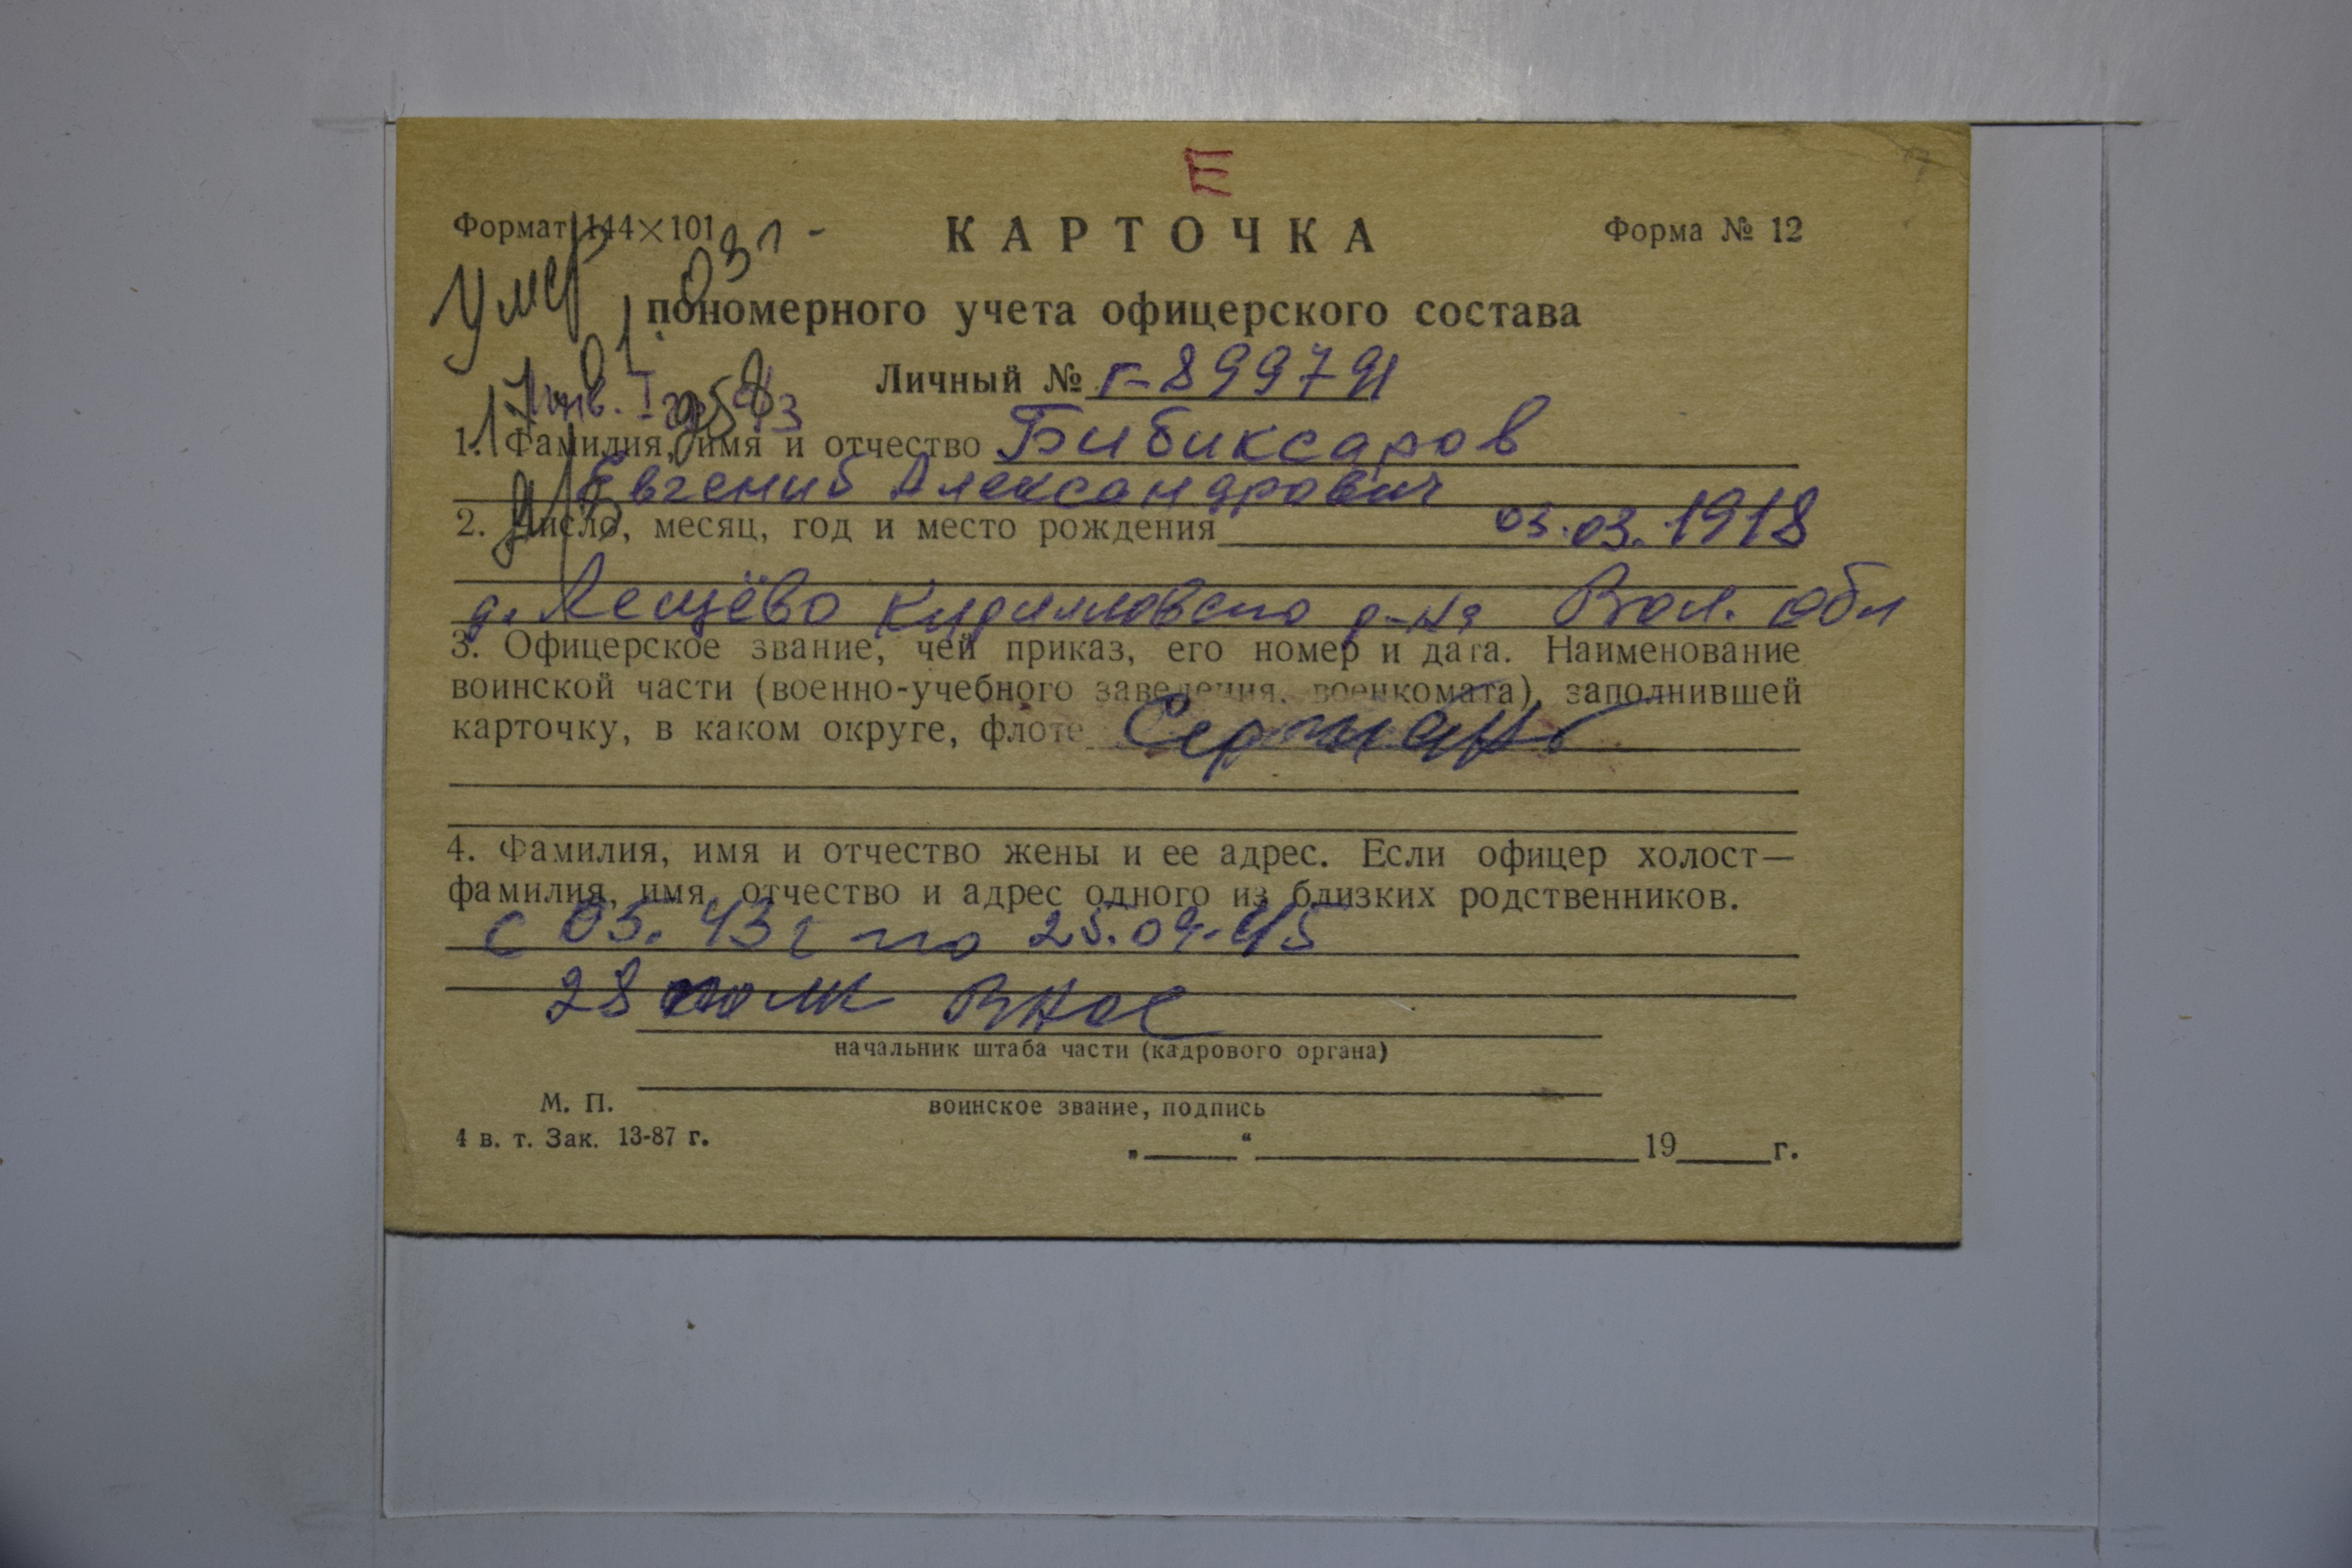 Е
Формат 144×101
КАРТОЧКА
Форма № 12
Умер
пономерного учета офицерского состава
Личный № Г-899791
Инв. I гр
1. Фамилия, имя и отчество Бибиксаров
Евгений Александрович
2. Число, месяц, год и место рождения 03.03.1918
д. Лещёво Кирилловского р-на Вол. обл
3. Офицерское звание, чей приказ, его номер и дата. Наименование
воинской части (военно-учебного заведения, военкомата), заполнившей
карточку, в каком округе, флоте Сержант
4. Фамилия, имя и отчество жены и ее адрес. Если офицер холост—
фамилия, имя, отчество и адрес одного из близких родственников.
с 05.43 г по 25.09.45
28 полк ВНОС
начальник штаба части (кадрового органа)
М. П.
воинское звание, подпись
4 в. т. Зак. 13-87 г.
„ “ 19 г.